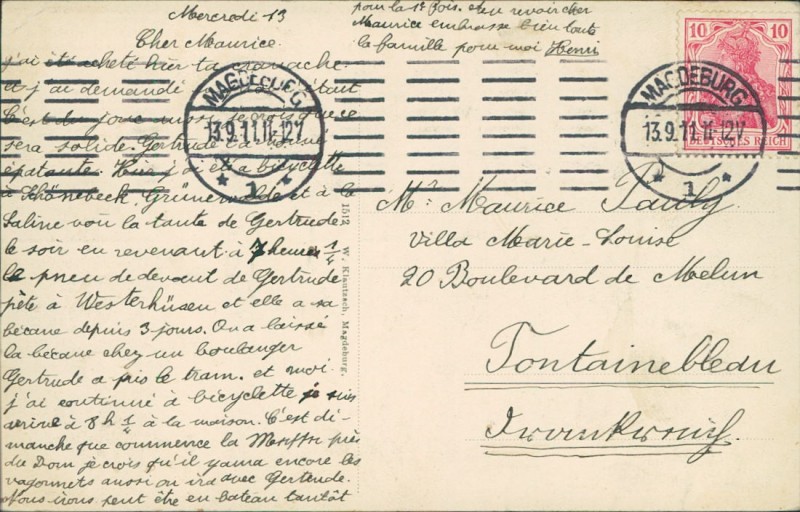 Mercredi 13
Cher Maurice.
j'ai été acheté hier ta
j'ai demandé c'était
C'est du jonc mou je crois que ce
sera solide. Gertrude l'a trouvé
épatante. Hier j'ai été à bicyclette
à Schönebeck, Grünewalde et à la
Saline voir la tante de Gertrude
le soir en revenant à 7 heures 1/4
le pneu de devant de Gertrude
pète à Westerhüsen et elle a sa
bécane depuis 3 jours. On a laissé
la bécane chez un boulanger
Gertrude a pris le tram. et moi
j'ai continué à bicyclette je suis
arrivé à 8 h 1/4 à la maison. C'est di-
manche que commence la Messe près
du Dom je crois qu'il y aura encore les
wagonnets aussi on ira avec Gertrude.
Nous irons peut être en bateau tantôt
pour la 1e fois. Au revoir cher
Maurice embrasse bien toute
la famille pour moi Henri
1512 W. Klautzsch, Magdeburg.
MAGDEBURG
13.9.11.11-12V
* 1 *
MAGDEBURG
13.9.11.11-12V
* 1 *
10 10
DEUTSCHES REICH
Mr Maurice Pauly
Villa Marie-Louise
20 Boulevard de Melun
Fontainebleau
Frankreich.